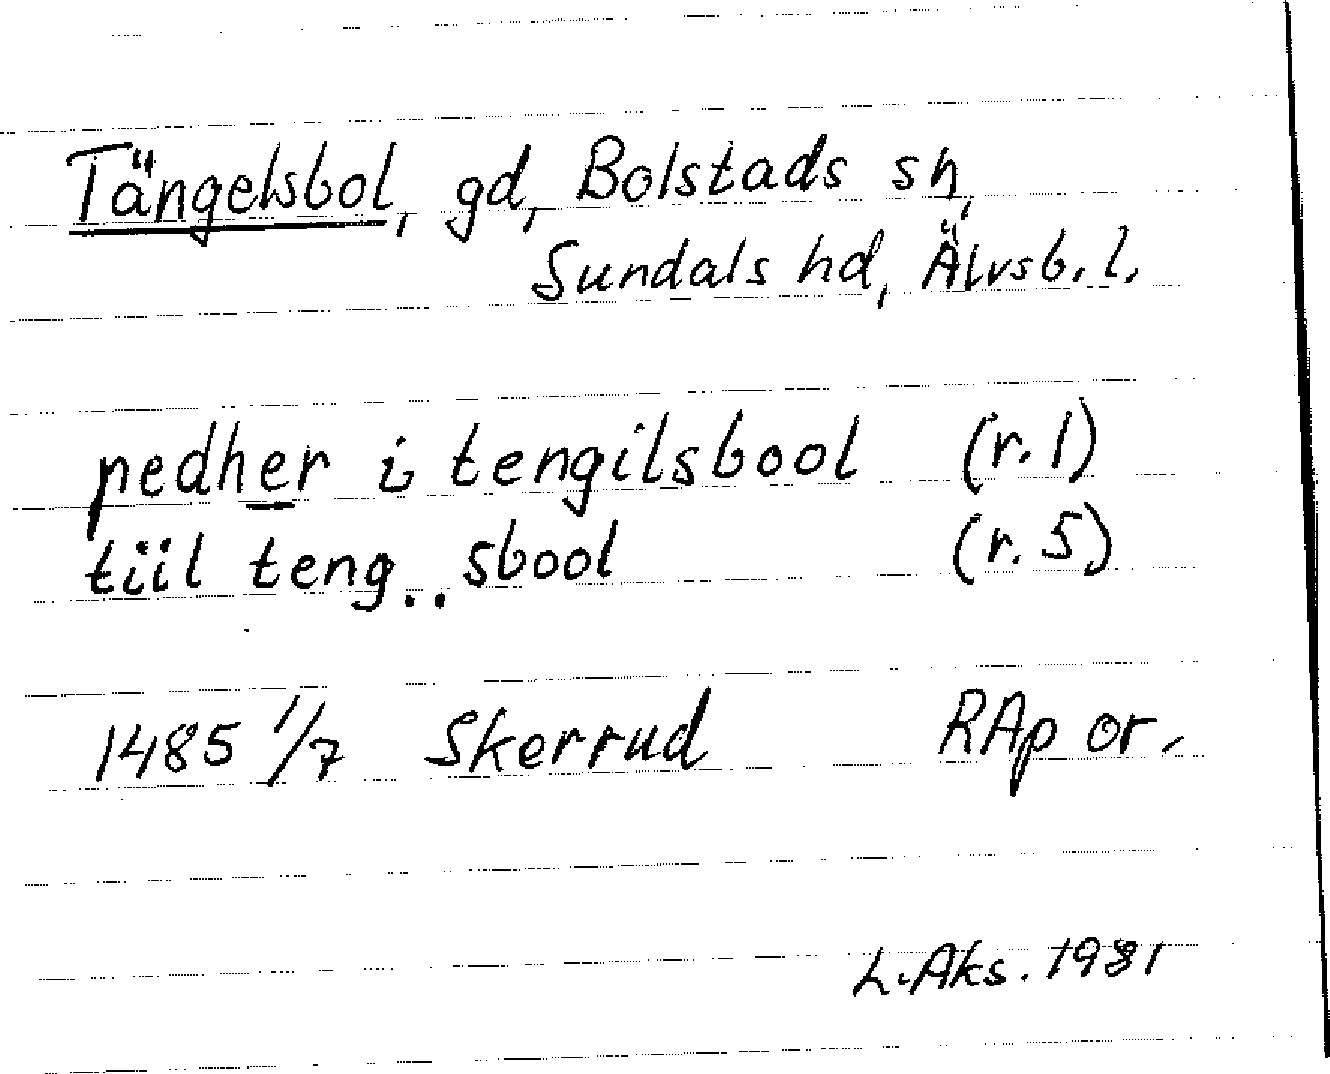 Tängelsbol, gd, Bolstads sn,
Sundals hd, Älvsb. l.
pedher i tengilsbool (r. 1)
tiil teng..sbool (r. 5)
1485 1/7 Skerrud RAp or.
L. Aks. 1981